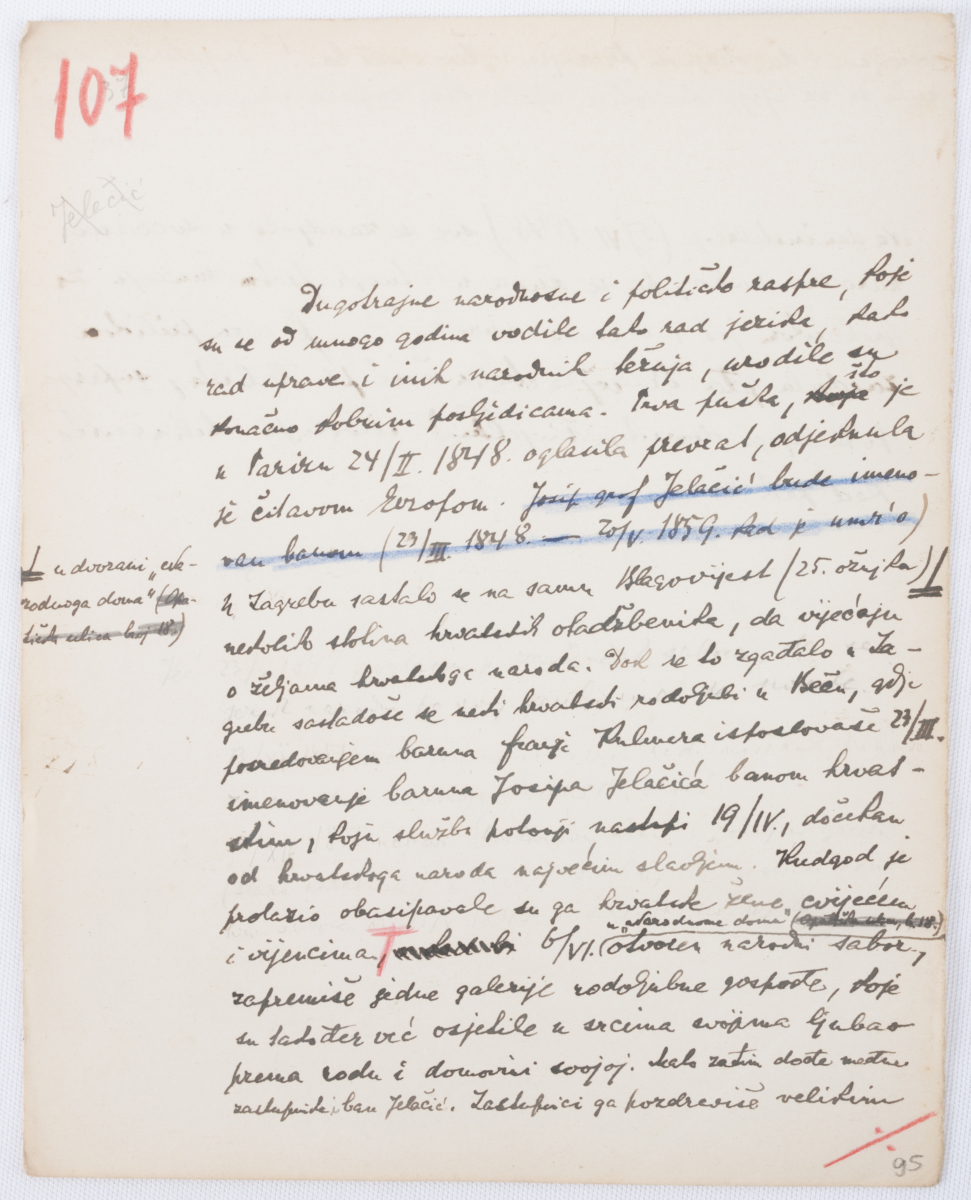 107
37
Jelačić
Dugotrajne narodnosne i političke raspre, koje
su se od mnogo godina vodile kako rad jezika, kako
rad uprave i inih narodnih težnja, urodile su
što
konačno dobrim posljedicama. Prva puška, koja je
u Parizu 24/II. 1848. oglasila prevrat, odjeknula
je čitavom Evropom. Josip grof Jelačić bude imeno-
van banom (23/III. 1848. — 20/V. 1859. kad je umr'o)
U Zagrebu sastalo se na samu Blagovijest (25. ožujka)
⊥ u dvorani „Na-
rodnoga doma" (Opa-
tička ulica broj 18.)
nekolik stotina hrvatskih otadžbenika, da vijećaju
o željama hrvatskoga naroda. Dok se to zgađalo u Za-
grebu sastadoše se neki hrvatski rodoljubi u Beču, gdje
posredovanjem baruna Franje Kulmera isposlovaše 23/III.
imenovanje baruna Josipa Jelačića banom hrvat-
skim, koju službu potonji nastupi 19/IV., dočekan
od hrvatskoga naroda najvećim slavljem. Kudgod je
prolazio obasipavale su ga hrvatske žene cvijećem
u „Narodnome domu" (Opatička ulica, b. 18.)
i vijencima. 6/VI. otvoren narodni sabor,
zapremiše jedne galerije rodoljubne gospođe, koje
su također već osjetile u srcima svojima ljubav
prema rodu i domovini svojoj. Malo zatim dođe među
zastupnike ban Jelačić. Zastupnici ga pozdraviše velikim
95